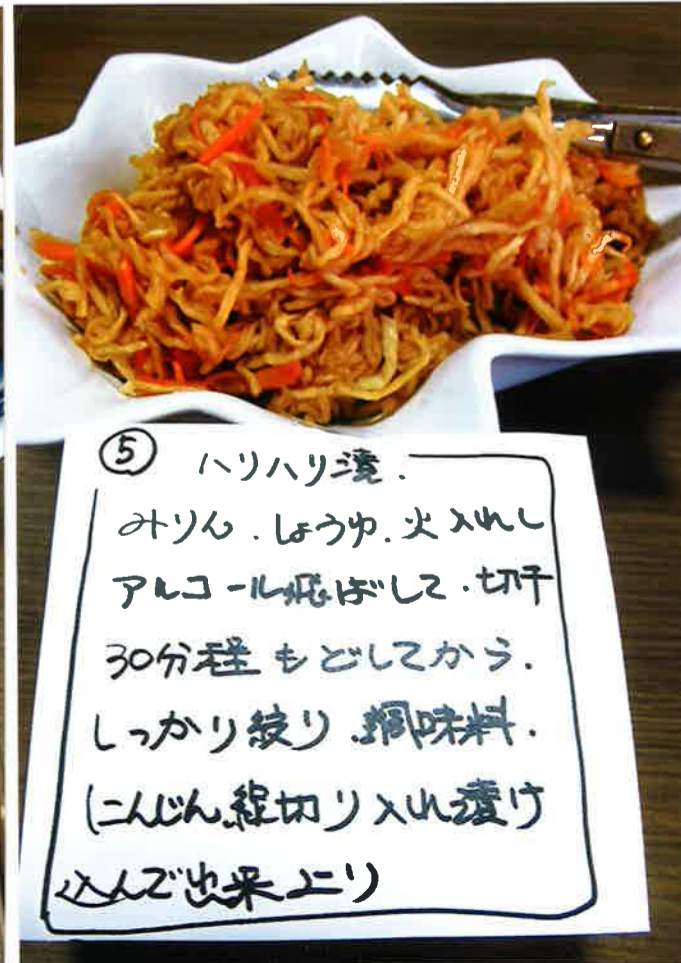 ⑤ ハリハリ漬.
みりん.しょうゆ.火入れし
アルコール飛ばして.切干
30分程もどしてから.
しっかり絞り.調味料.
にんじん線切り入れ漬け
込んで出来上り